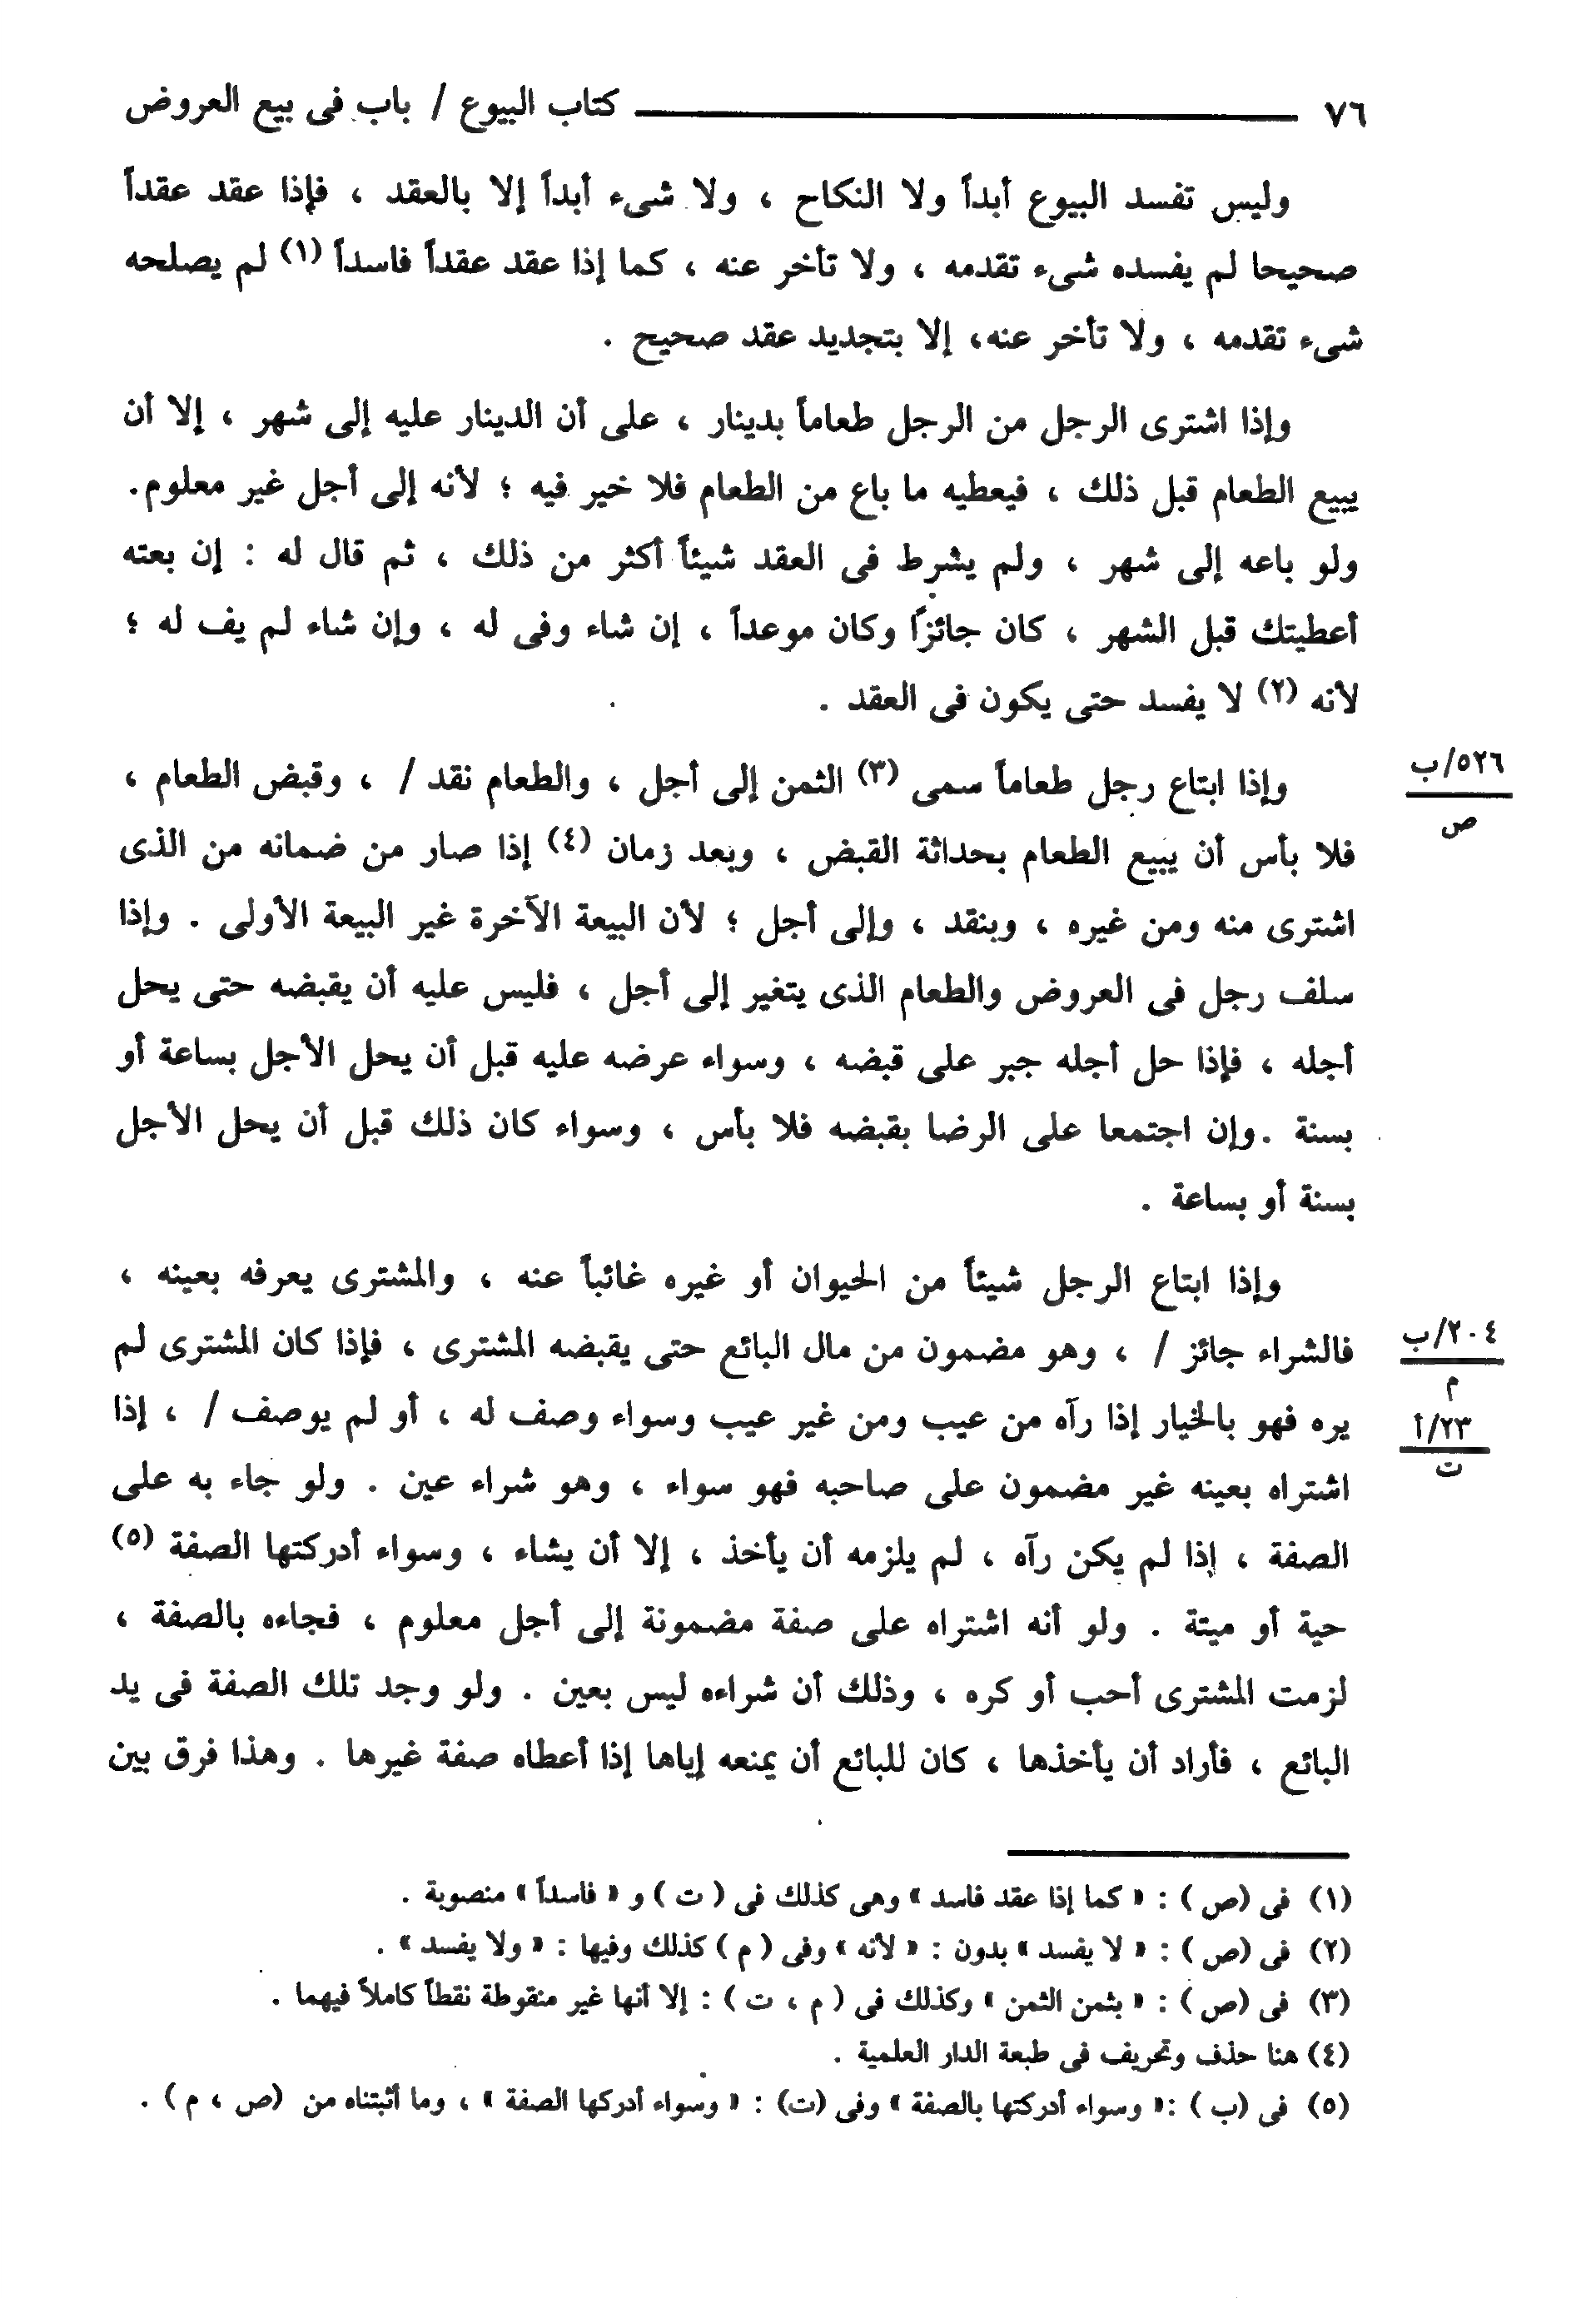 ٧٦ كتاب البيوع / باب فى بيع العروض
وليس تفسد البيوع أبداً ولا النكاح ، ولا شىء أبداً إلا بالعقد ، فإذا عقد عقداً
صحيحا لم يفسده شىء تقدمه ، ولا تأخر عنه ، كما إذا عقد عقداً فاسداً (١) لم يصلحه
شىء تقدمه ، ولا تأخر عنه، إلا بتجديد عقد صحيح .
وإذا اشترى الرجل من الرجل طعاماً بدينار ، على أن الدينار عليه إلى شهر ، إلا أن
يبيع الطعام قبل ذلك ، فيعطيه ما باع من الطعام فلا خير فيه ؛ لأنه إلى أجل غير معلوم.
ولو باعه إلى شهر ، ولم يشرط فى العقد شيئاً أكثر من ذلك ، ثم قال له : إن بعته
أعطيتك قبل الشهر ، كان جائزاً وكان موعداً ، إن شاء وفى له ، وإن شاء لم يف له ؛
لأنه (٢) لا يفسد حتى يكون فى العقد .
وإذا ابتاع رجل طعاماً سمى (٣) الثمن إلى أجل ، والطعام نقد / ، وقبض الطعام ،
٥٢٦/ب
ص
فلا بأس أن يبيع الطعام بحداثة القبض ، وبعد زمان (٤) إذا صار من ضمانه من الذى
اشترى منه ومن غيره ، وبنقد ، وإلى أجل ؛ لأن البيعة الآخرة غير البيعة الأولى . وإذا
سلف رجل فى العروض والطعام الذى يتغير إلى أجل ، فليس عليه أن يقبضه حتى يحل
أجله ، فإذا حل أجله جبر على قبضه ، وسواء عرضه عليه قبل أن يحل الأجل بساعة أو
بسنة .وإن اجتمعا على الرضا بقبضه فلا بأس ، وسواء كان ذلك قبل أن يحل الأجل
بسنة أو بساعة .
وإذا ابتاع الرجل شيئاً من الحيوان أو غيره غائباً عنه ، والمشترى يعرفه بعينه ،
فالشراء جائز / ، وهو مضمون من مال البائع حتى يقبضه المشترى ، فإذا كان المشترى لم
٢٠٤/ب
م
يره فهو بالخيار إذا رآه من عيب ومن غير عيب وسواء وصف له ، أو لم يوصف / ، إذا
٢٣/أ
ت
اشتراه بعينه غير مضمون على صاحبه فهو سواء ، وهو شراء عين . ولو جاء به على
الصفة ، إذا لم يكن رآه ، لم يلزمه أن يأخذ ، إلا أن يشاء ، وسواء أدركتها الصفة (٥)
حية أو ميتة . ولو أنه اشتراه على صفة مضمونة إلى أجل معلوم ، فجاءه بالصفة ،
لزمت المشترى أحب أو كره ، وذلك أن شراءه ليس بعين . ولو وجد تلك الصفة فى يد
البائع ، فأراد أن يأخذها ، كان للبائع أن يمنعه إياها إذا أعطاه صفة غيرها . وهذا فرق بين
(١) فى (ص ) : « كما إذا عقد فاسد » وهى كذلك فى ( ت ) و « فاسداً » منصوبة .
(٢) فى (ص ) : « لا يفسد » بدون : « لأنه » وفى ( م ) كذلك وفيها : « ولا يفسد » .
(٣) فى (ص ) : « بثمن الثمن » وكذلك فى ( م ، ت ) : إلا أنها غير منقوطة نقطاً كاملاً فيهما .
(٤) هنا حذف وتحريف فى طبعة الدار العلمية .
(٥) فى (ب ) :« وسواء أدركتها بالصفة » وفى (ت) : « وسواء أدركها الصفة » ، وما أثبتناه من (ص ، م ) .